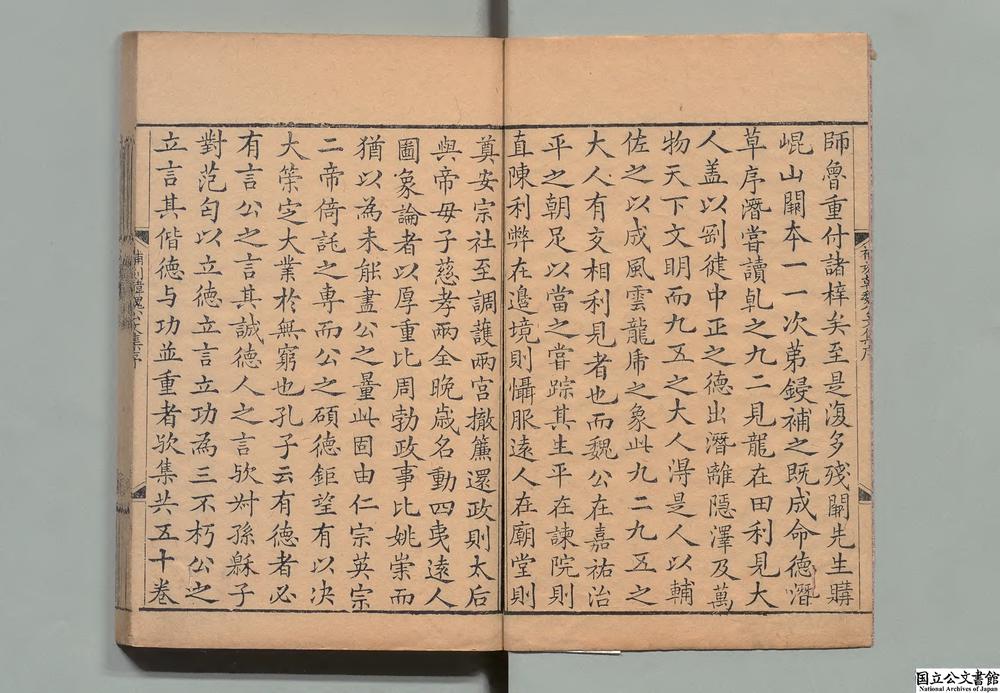 師魯重付諸梓矣至是復多殘闕先生購
崐山闕本一一次第鋟補之既成命德潛
草序潛嘗讀乹之九二見龍在田利見大
人盖以剛健中正之德出潛離隱澤及萬
物天下文明而九五之大人淂是人以輔
佐之以成風雲龍虎之象此九二九五之
大人有交相利見者也而魏公在嘉祐治
平之朝足以當之嘗踪其生平在諫院則
直陳利弊在邉境則懾服遠人在廟堂則
奠安宗社至調護兩宫撤簾還政則太后
與帝毋子慈孝兩全晚歳名動四夷遠人
圖象論者以厚重比周勃政事比姚崇而
猶以為未能盡公之量此固由仁宗英宗
二帝倚託之専而公之碩德鉅望有以决
大䇿定大業於無窮也孔子云有德者必
有言公之言其誠德人之言欤叔孫豹子
對范匄以立德立言立功為三不朽公之
立言其偕德与功並重者欤集共五十巻
補刻韓魏公集序
国立公文書館
National Archives of Japan